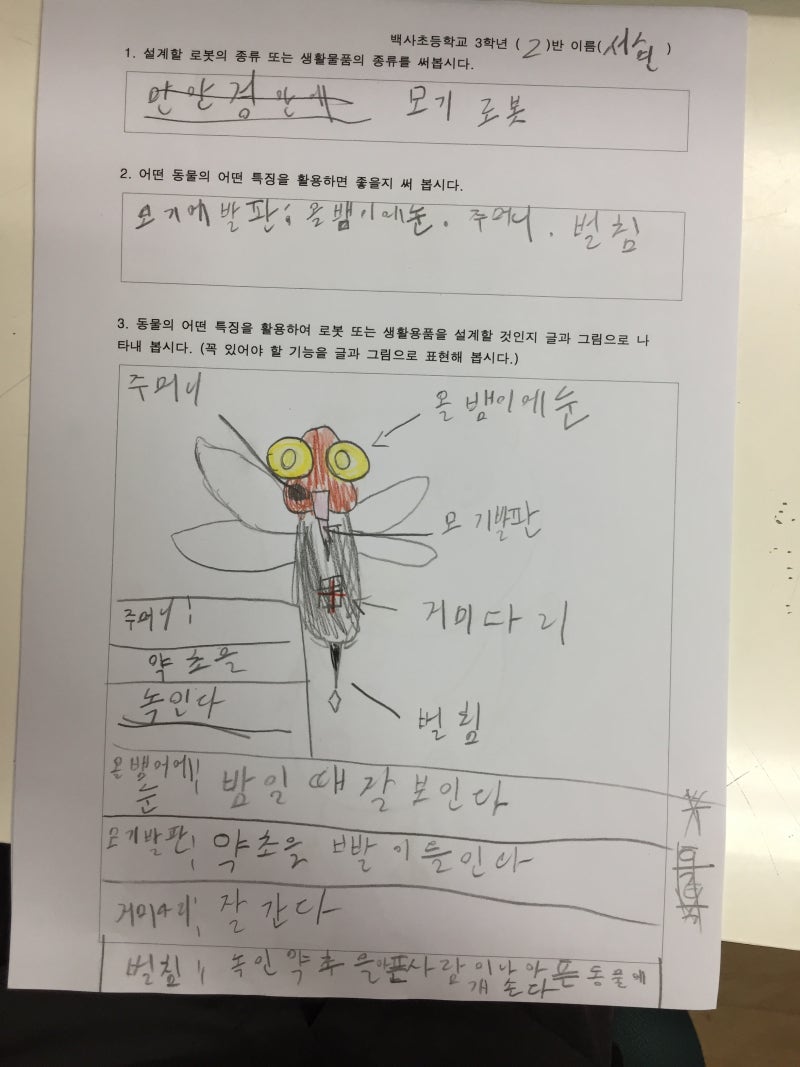 백사초등학교 3학년 ( 2 )반 이름( )
1. 설계할 로봇의 종류 또는 생활물품의 종류를 써봅시다.
모기 로봇
2. 어떤 동물의 어떤 특징을 활용하면 좋을지 써 봅시다.
모기에 발판, 올뱀이에눈. 주머니. 벌침
3. 동물의 어떤 특징을 활용하여 로봇 또는 생활용품을 설계할 것인지 글과 그림으로 나
타내 봅시다. (꼭 있어야 할 기능을 글과 그림으로 표현해 봅시다.)
주머니
올뱀이에눈
모기발판
거미다리
벌침
주머니:
약초을
녹인다
올뱀이에 눈: 밤일 때 잘 보인다
모기발판: 약초을 빨이들인다
거미다리: 잘 간다
벌침: 녹인 약초을 아픈사람이나 아픈 동물에
개 쏜다